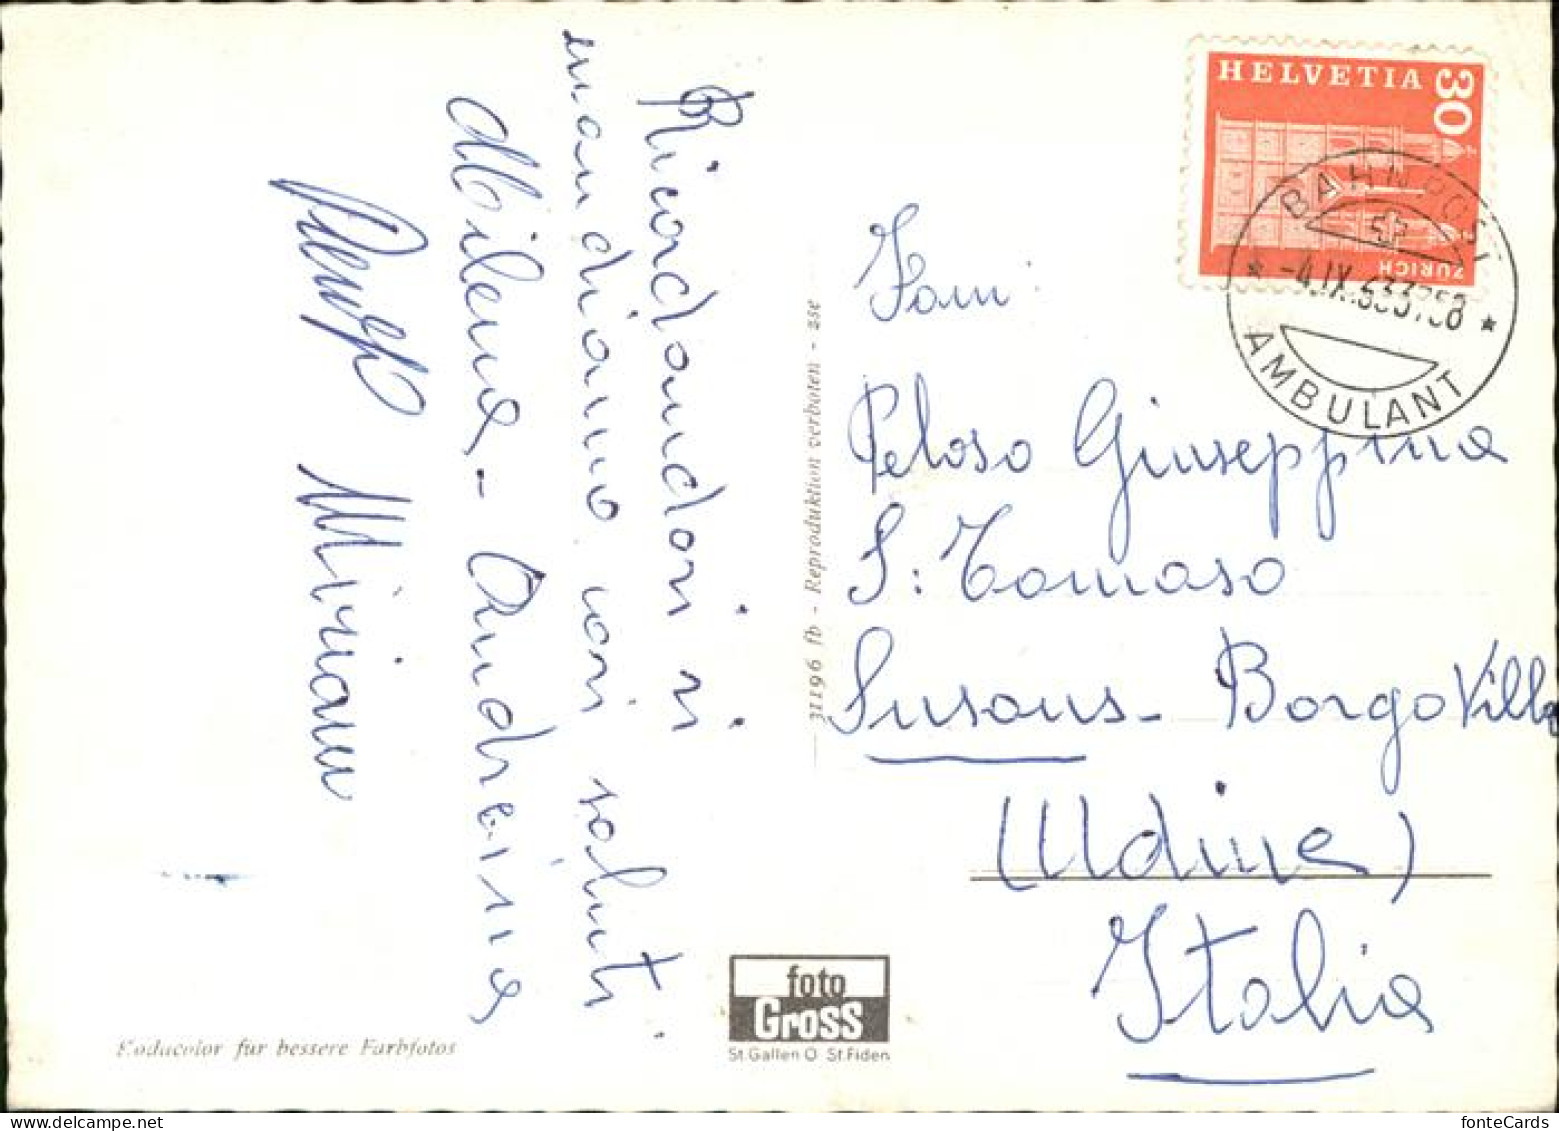 Ricordandovi vi
mandiamo cari saluti
Milena - Andreina
Miriam
HELVETIA
30
ZÜRICH
BAHNPOST
-4.IX.63 3758
AMBULANT
Fam:
Peloso Giuseppina
S. Tomaso
Susans - Borgo Villa
(Udine)
Italia
31196 fb - Reproduktion verboten - zse
foto
Gross
St. Gallen O St. Fiden
Kodacolor für bessere Farbfotos
fonteCards